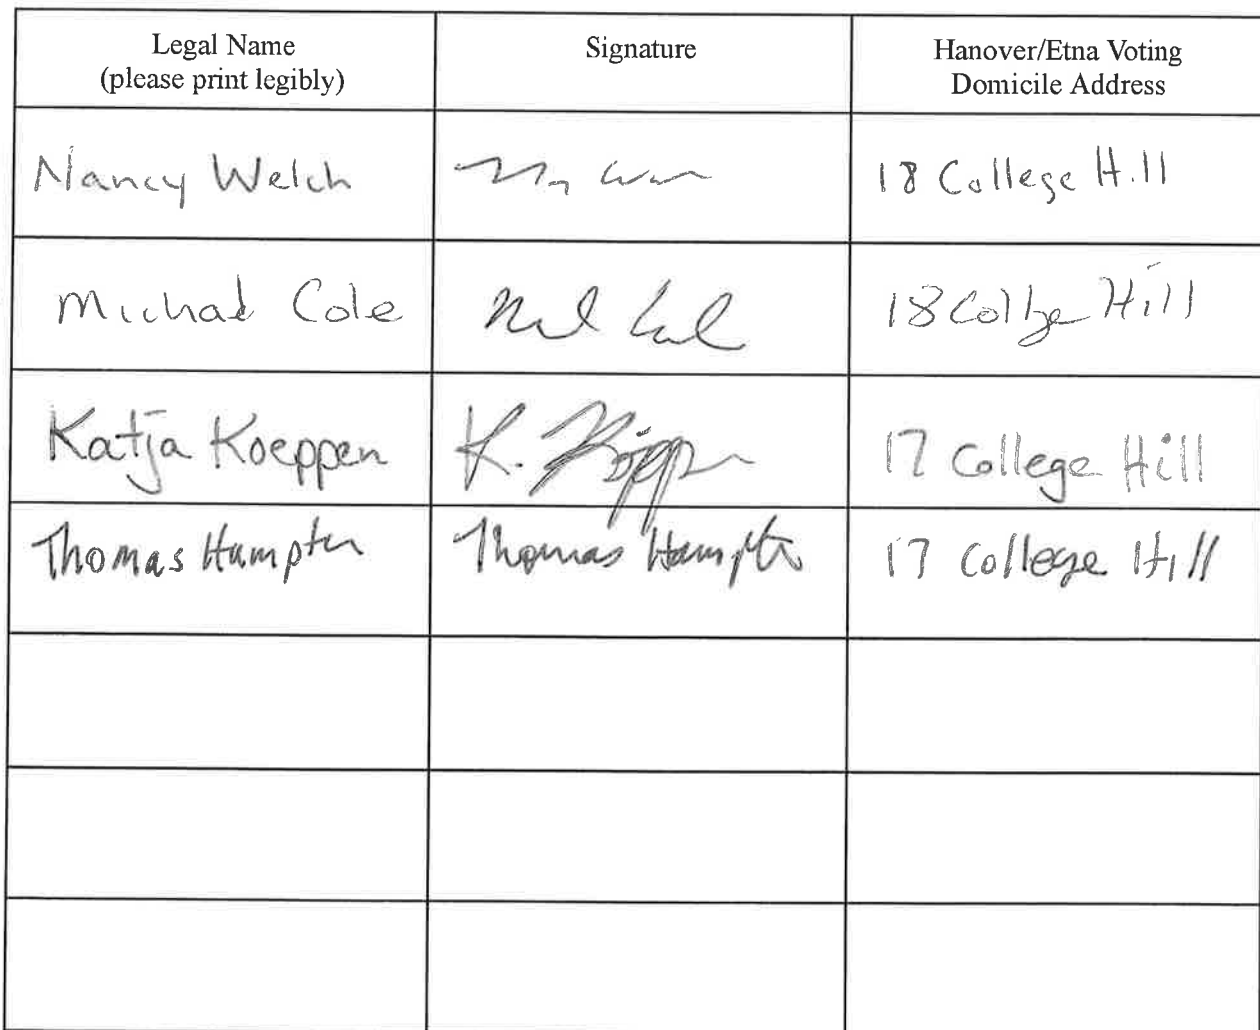 Legal Name
(please print legibly)
Signature
Hanover/Etna Voting
Domicile Address
Nancy Welch 18 College Hill
Michael Cole 18 College Hill
Katja Koeppen K. Köppen 17 College Hill
Thomas Hampton Thomas Hampton 17 College Hill